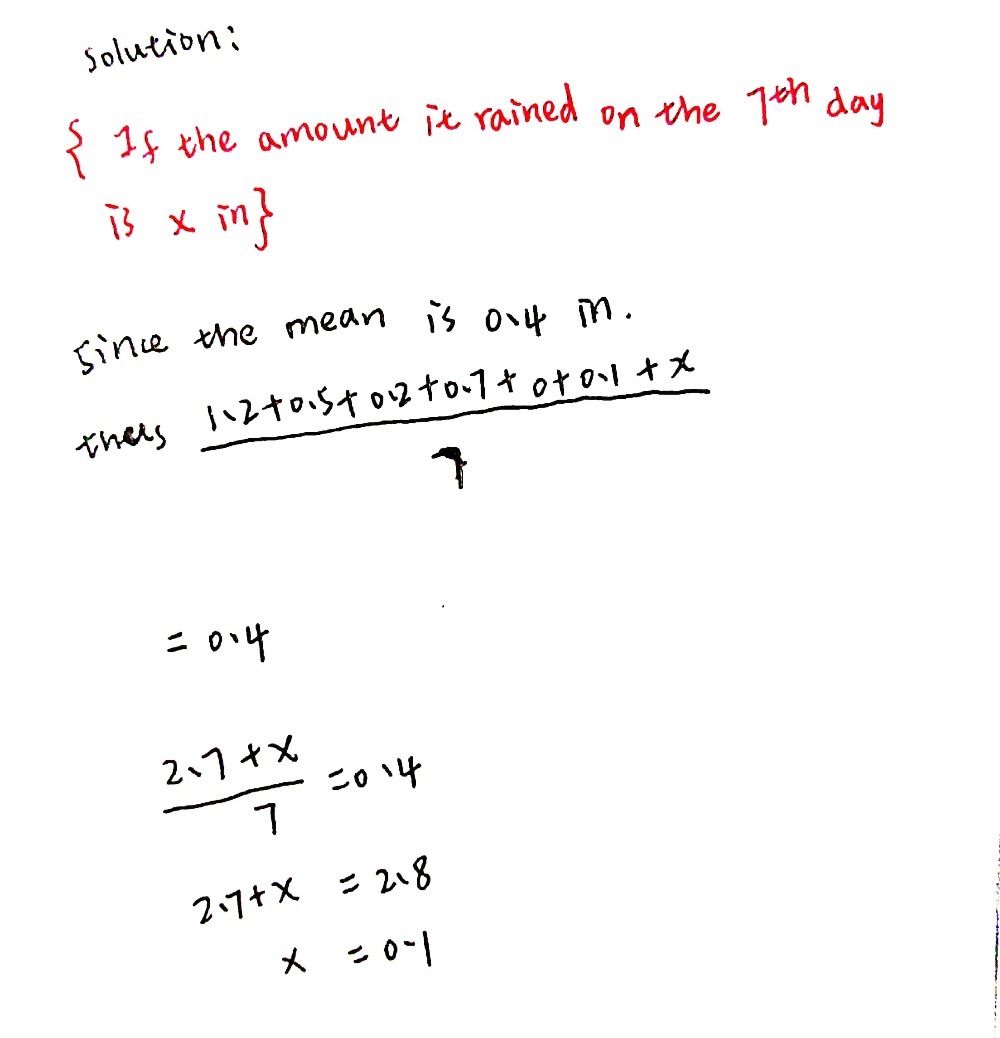 solution:
{ If the amount it rained on the 7th day
is x in}
Since the mean is 0.4 in.
thus 1.2+0.5+0.2+0.7+0+0.1+x
7
= 0.4
2.7+x
7
=0.4
2.7+x = 2.8
x = 0.1